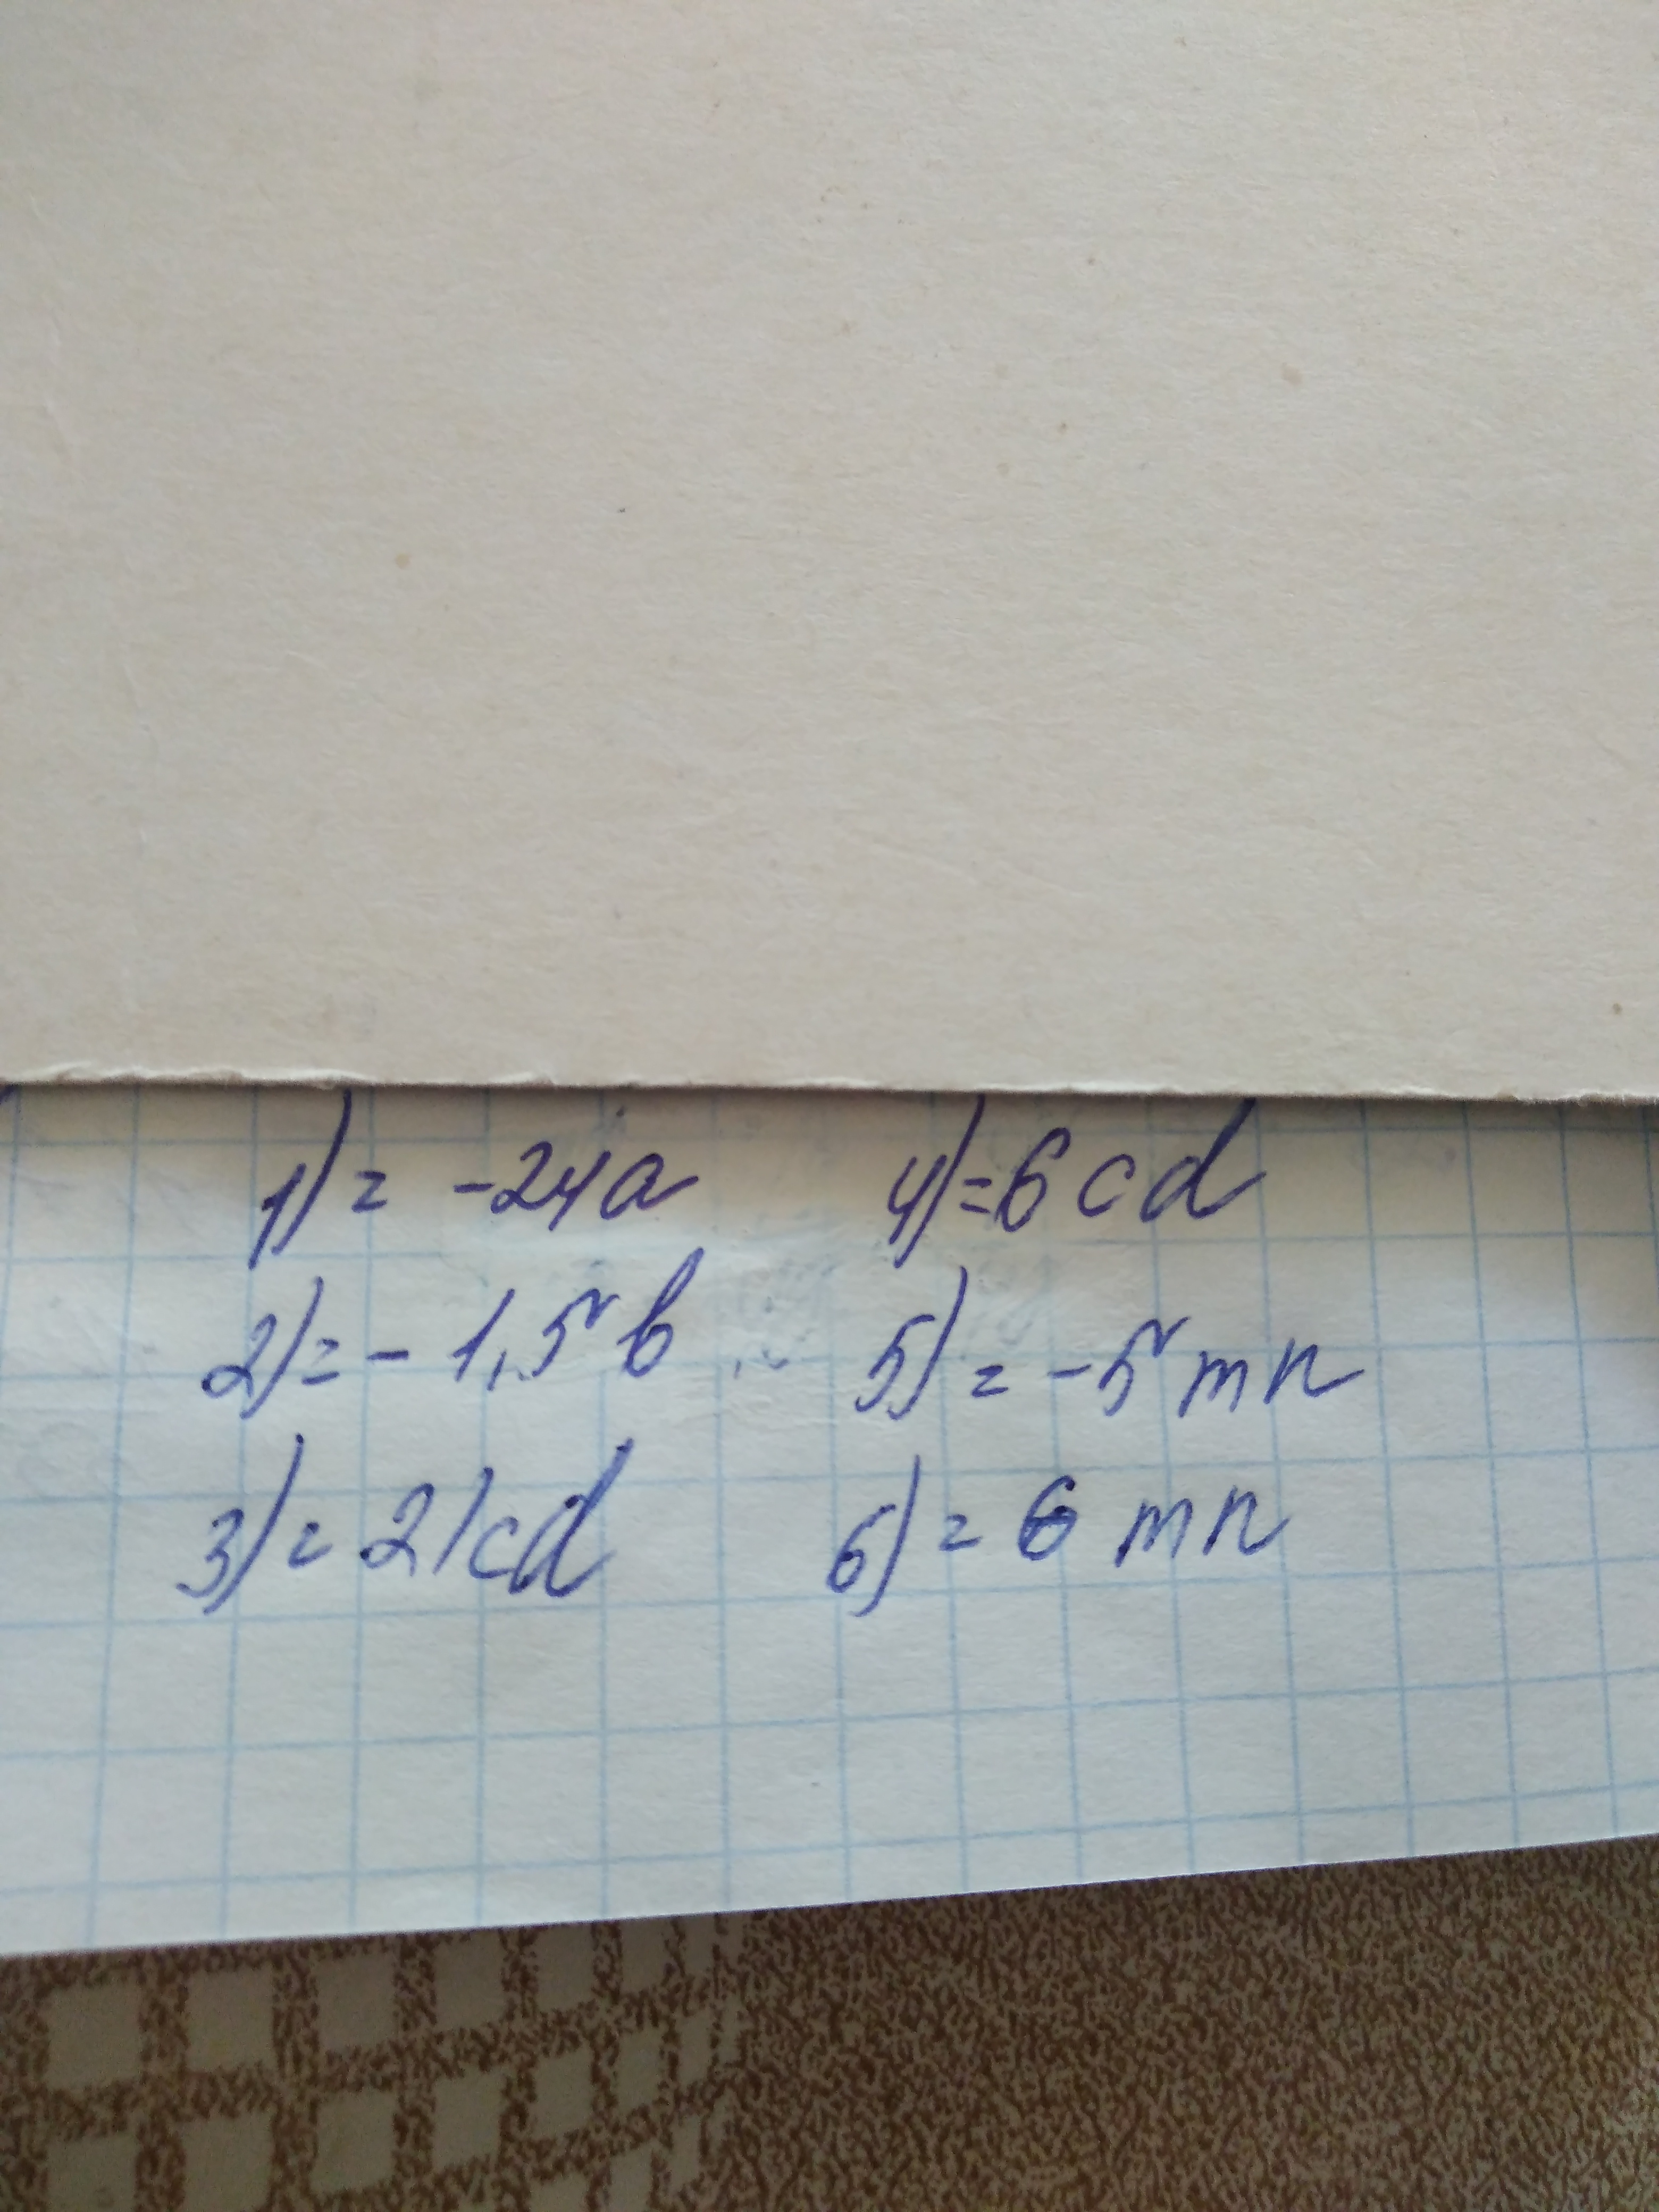 1) = -24a 4) = 6cd
2) = - 1,5b 5) = -5mn
3) = 21cd 6) = 6 mn